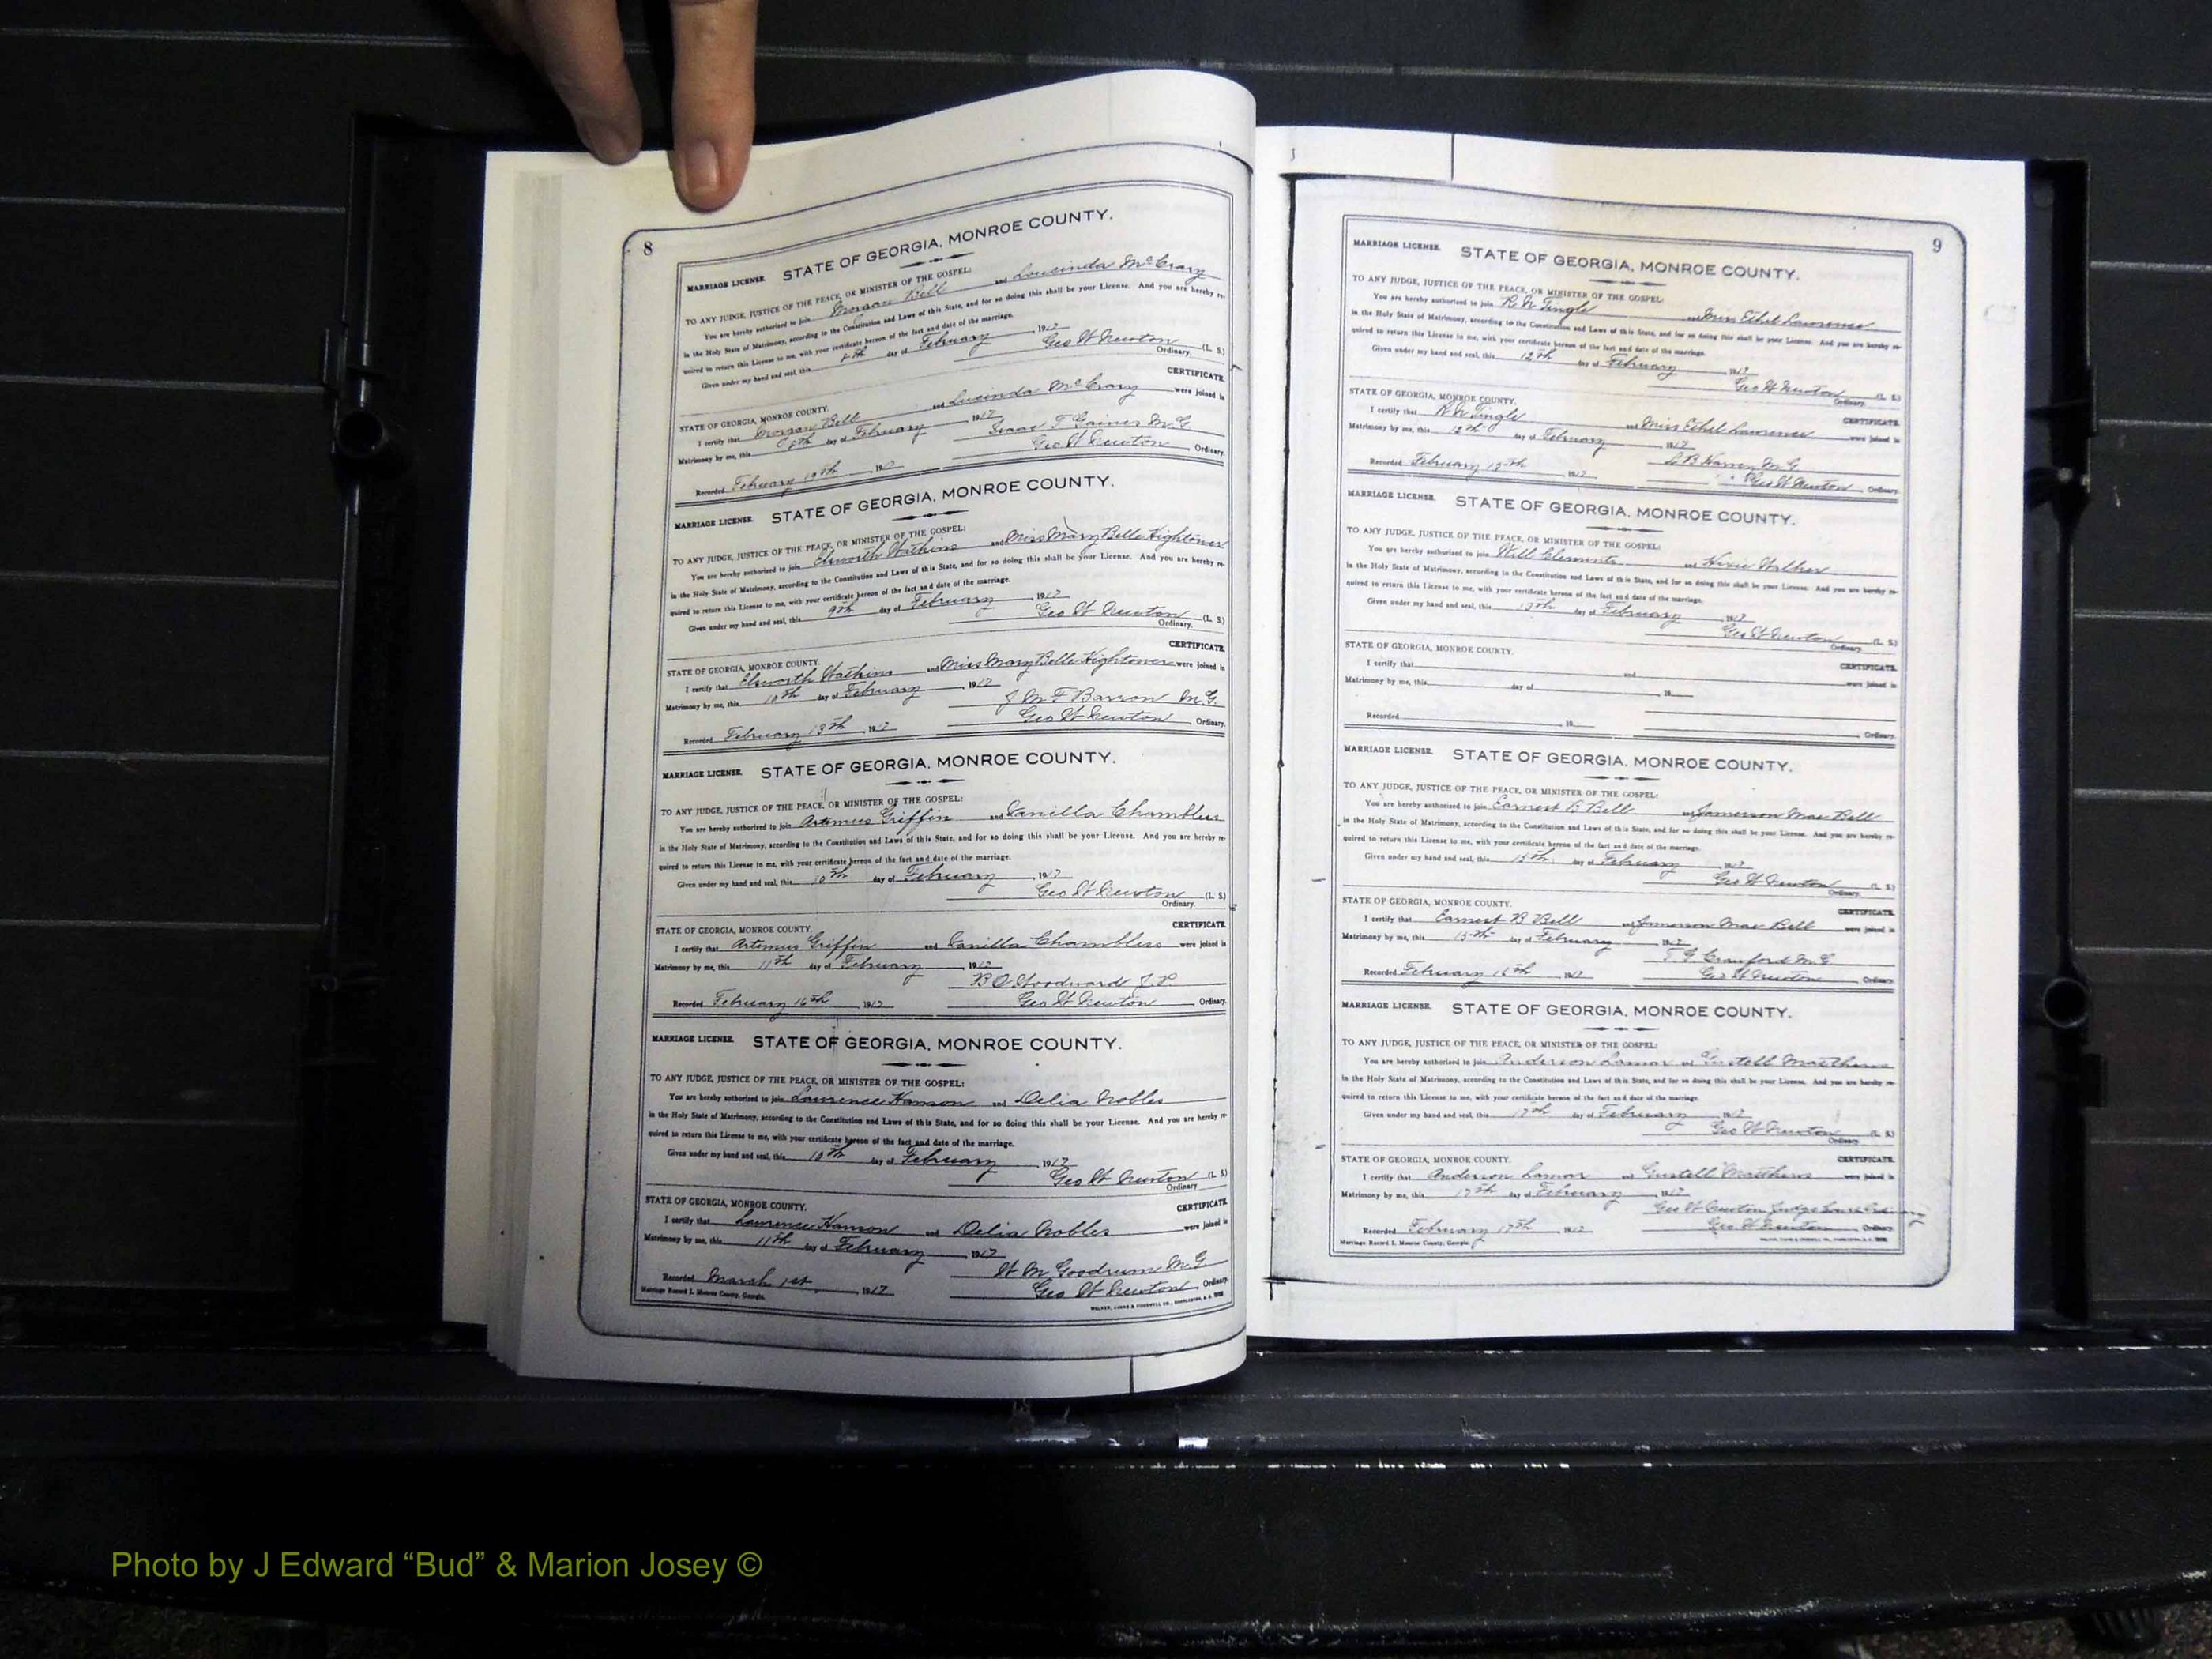 8
MARRIAGE LICENSE. STATE OF GEORGIA, MONROE COUNTY.
TO ANY JUDGE, JUSTICE OF THE PEACE, OR MINISTER OF THE GOSPEL:
You are hereby authorized to join Morgan Bell and Loucinda McCrary
in the Holy State of Matrimony, according to the Constitution and Laws of this State, and for so doing this shall be your License. And you are hereby re-
quired to return this License to me, with your certificate hereon of the fact and date of the marriage.
Given under my hand and seal, this 8th day of February, 1917
Geo W Newton (L. S.)
Ordinary.
CERTIFICATE.
STATE OF GEORGIA, MONROE COUNTY.
I certify that Morgan Bell and Lucinda McCrary were joined in
Matrimony by me, this day of February, 1917
Isaac T Gaines M.G.
Recorded February 19th, 1917 Geo W Newton, Ordinary.
MARRIAGE LICENSE. STATE OF GEORGIA, MONROE COUNTY.
TO ANY JUDGE, JUSTICE OF THE PEACE, OR MINISTER OF THE GOSPEL:
You are hereby authorized to join Elsworth Watkins and Miss Mary Belle Hightower
in the Holy State of Matrimony, according to the Constitution and Laws of this State, and for so doing this shall be your License. And you are hereby re-
quired to return this License to me, with your certificate hereon of the fact and date of the marriage.
Given under my hand and seal, this 9th day of February, 1917
Geo W Newton (L. S.)
Ordinary.
CERTIFICATE.
STATE OF GEORGIA, MONROE COUNTY.
I certify that Elsworth Watkins and Miss Mary Belle Hightower were joined in
Matrimony by me, this 10th day of February, 1917
J M F Barron M.G.
Recorded February 13th, 1917 Geo W Newton, Ordinary.
MARRIAGE LICENSE. STATE OF GEORGIA, MONROE COUNTY.
TO ANY JUDGE, JUSTICE OF THE PEACE, OR MINISTER OF THE GOSPEL:
You are hereby authorized to join Artemus Griffin and Vanilla Chambliss
in the Holy State of Matrimony, according to the Constitution and Laws of this State, and for so doing this shall be your License. And you are hereby re-
quired to return this License to me, with your certificate hereon of the fact and date of the marriage.
Given under my hand and seal, this 10th day of February, 1917
Geo W Newton (L. S.)
Ordinary.
CERTIFICATE.
STATE OF GEORGIA, MONROE COUNTY.
I certify that Artemus Griffin and Vanilla Chambliss were joined in
Matrimony by me, this 11th day of February, 1917
B O Woodward J.P.
Recorded February 16th, 1917 Geo W Newton, Ordinary.
MARRIAGE LICENSE. STATE OF GEORGIA, MONROE COUNTY.
TO ANY JUDGE, JUSTICE OF THE PEACE, OR MINISTER OF THE GOSPEL:
You are hereby authorized to join Lawrence Hanson and Delia Nobles
in the Holy State of Matrimony, according to the Constitution and Laws of this State, and for so doing this shall be your License. And you are hereby re-
quired to return this License to me, with your certificate hereon of the fact and date of the marriage.
Given under my hand and seal, this 10th day of February, 1917
Geo W Newton (L. S.)
Ordinary.
STATE OF GEORGIA, MONROE COUNTY. CERTIFICATE.
I certify that Lawrence Hanson and Delia Nobles were joined in
Matrimony by me, this 11th day of February, 1917
W M Goodrum M.G.
Recorded March 1st, 1917 Geo W Newton, Ordinary.
Marriage Record I. Monroe County, Georgia.
9
MARRIAGE LICENSE. STATE OF GEORGIA, MONROE COUNTY.
TO ANY JUDGE, JUSTICE OF THE PEACE, OR MINISTER OF THE GOSPEL:
You are hereby authorized to join R W Tingle and Miss Ethel Lawrence
in the Holy State of Matrimony, according to the Constitution and Laws of this State, and for so doing this shall be your License. And you are hereby re-
quired to return this License to me, with your certificate hereon of the fact and date of the marriage.
Given under my hand and seal, this 12th day of February, 1917
Geo W Newton (L. S.)
Ordinary.
STATE OF GEORGIA, MONROE COUNTY. CERTIFICATE.
I certify that R W Tingle and Miss Ethel Lawrence were joined in
Matrimony by me, this 12th day of February, 1917
M G
Recorded February, 1917 Geo W Newton, Ordinary.
MARRIAGE LICENSE. STATE OF GEORGIA, MONROE COUNTY.
TO ANY JUDGE, JUSTICE OF THE PEACE, OR MINISTER OF THE GOSPEL:
You are hereby authorized to join Will Clements and Walker
in the Holy State of Matrimony, according to the Constitution and Laws of this State, and for so doing this shall be your License. And you are hereby re-
quired to return this License to me, with your certificate hereon of the fact and date of the marriage.
Given under my hand and seal, this day of February, 1917
Geo W Newton (L. S.)
Ordinary.
STATE OF GEORGIA, MONROE COUNTY. CERTIFICATE.
I certify that and were joined in
Matrimony by me, this day of, 19
Recorded, 19
Ordinary.
MARRIAGE LICENSE. STATE OF GEORGIA, MONROE COUNTY.
TO ANY JUDGE, JUSTICE OF THE PEACE, OR MINISTER OF THE GOSPEL:
You are hereby authorized to join Earnest B Bell and Jamerson Mae Bell
in the Holy State of Matrimony, according to the Constitution and Laws of this State, and for so doing this shall be your License. And you are hereby re-
quired to return this License to me, with your certificate hereon of the fact and date of the marriage.
Given under my hand and seal, this 15th day of February, 1917
Geo W Newton (L. S.)
Ordinary.
STATE OF GEORGIA, MONROE COUNTY. CERTIFICATE.
I certify that Earnest B Bell and Jamerson Mae Bell were joined in
Matrimony by me, this 15th day of February, 1917
T G Crawford M.G.
Recorded February 16th, 1917 Geo W Newton, Ordinary.
MARRIAGE LICENSE. STATE OF GEORGIA, MONROE COUNTY.
TO ANY JUDGE, JUSTICE OF THE PEACE, OR MINISTER OF THE GOSPEL:
You are hereby authorized to join Anderson Lamar and Matthews
in the Holy State of Matrimony, according to the Constitution and Laws of this State, and for so doing this shall be your License. And you are hereby re-
quired to return this License to me, with your certificate hereon of the fact and date of the marriage.
Given under my hand and seal, this 17th day of February, 1917
Geo W Newton (L. S.)
Ordinary.
STATE OF GEORGIA, MONROE COUNTY. CERTIFICATE.
I certify that Anderson Lamar and Matthews were joined in
Matrimony by me, this 17th day of February, 1917
Geo W Newton Judge Court Ordinary
Recorded February 17th, 1917 Geo W Newton, Ordinary.
Marriage Record I. Monroe County, Georgia.
Photo by J Edward “Bud” & Marion Josey ©